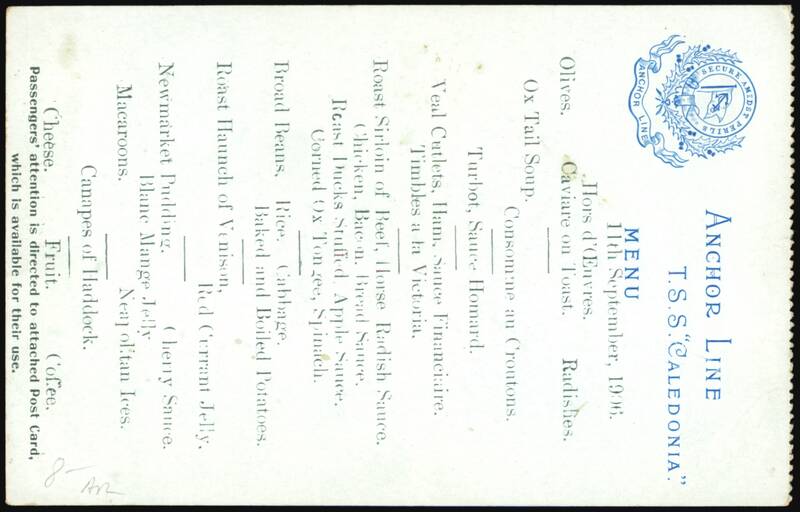 SECURE AMIDST PERILS
ANCHOR LINE
ANCHOR LINE
T.S.S. "CALEDONIA."
11th September, 1906.
MENU
Hors d'Œuvres.
Olives. Caviare on Toast. Radishes.
Ox Tail Soup. Consomme au Croutons.
Turbot, Sauce Homard.
Veal Cutlets, Ham, Sauce Financiaire.
Timbles a la Victoria.
Roast Sirloin of Beef, Horse Radish Sauce.
Chicken, Bacon, Bread Sauce.
Roast Ducks Stuffed, Apple Sauce.
Corned Ox Tongue, Spinach.
Broad Beans. Rice. Cabbage.
Baked and Boiled Potatoes.
Roast Haunch of Venison,
Red Currant Jelly.
Newmarket Pudding. Cherry Sauce.
Blanc Mange Jelly
Macaroons. Neapolitan Ices.
Canapes of Haddock.
Cheese. Fruit. Coffee.
Passengers' attention is directed to attached Post Card,
which is available for their use.